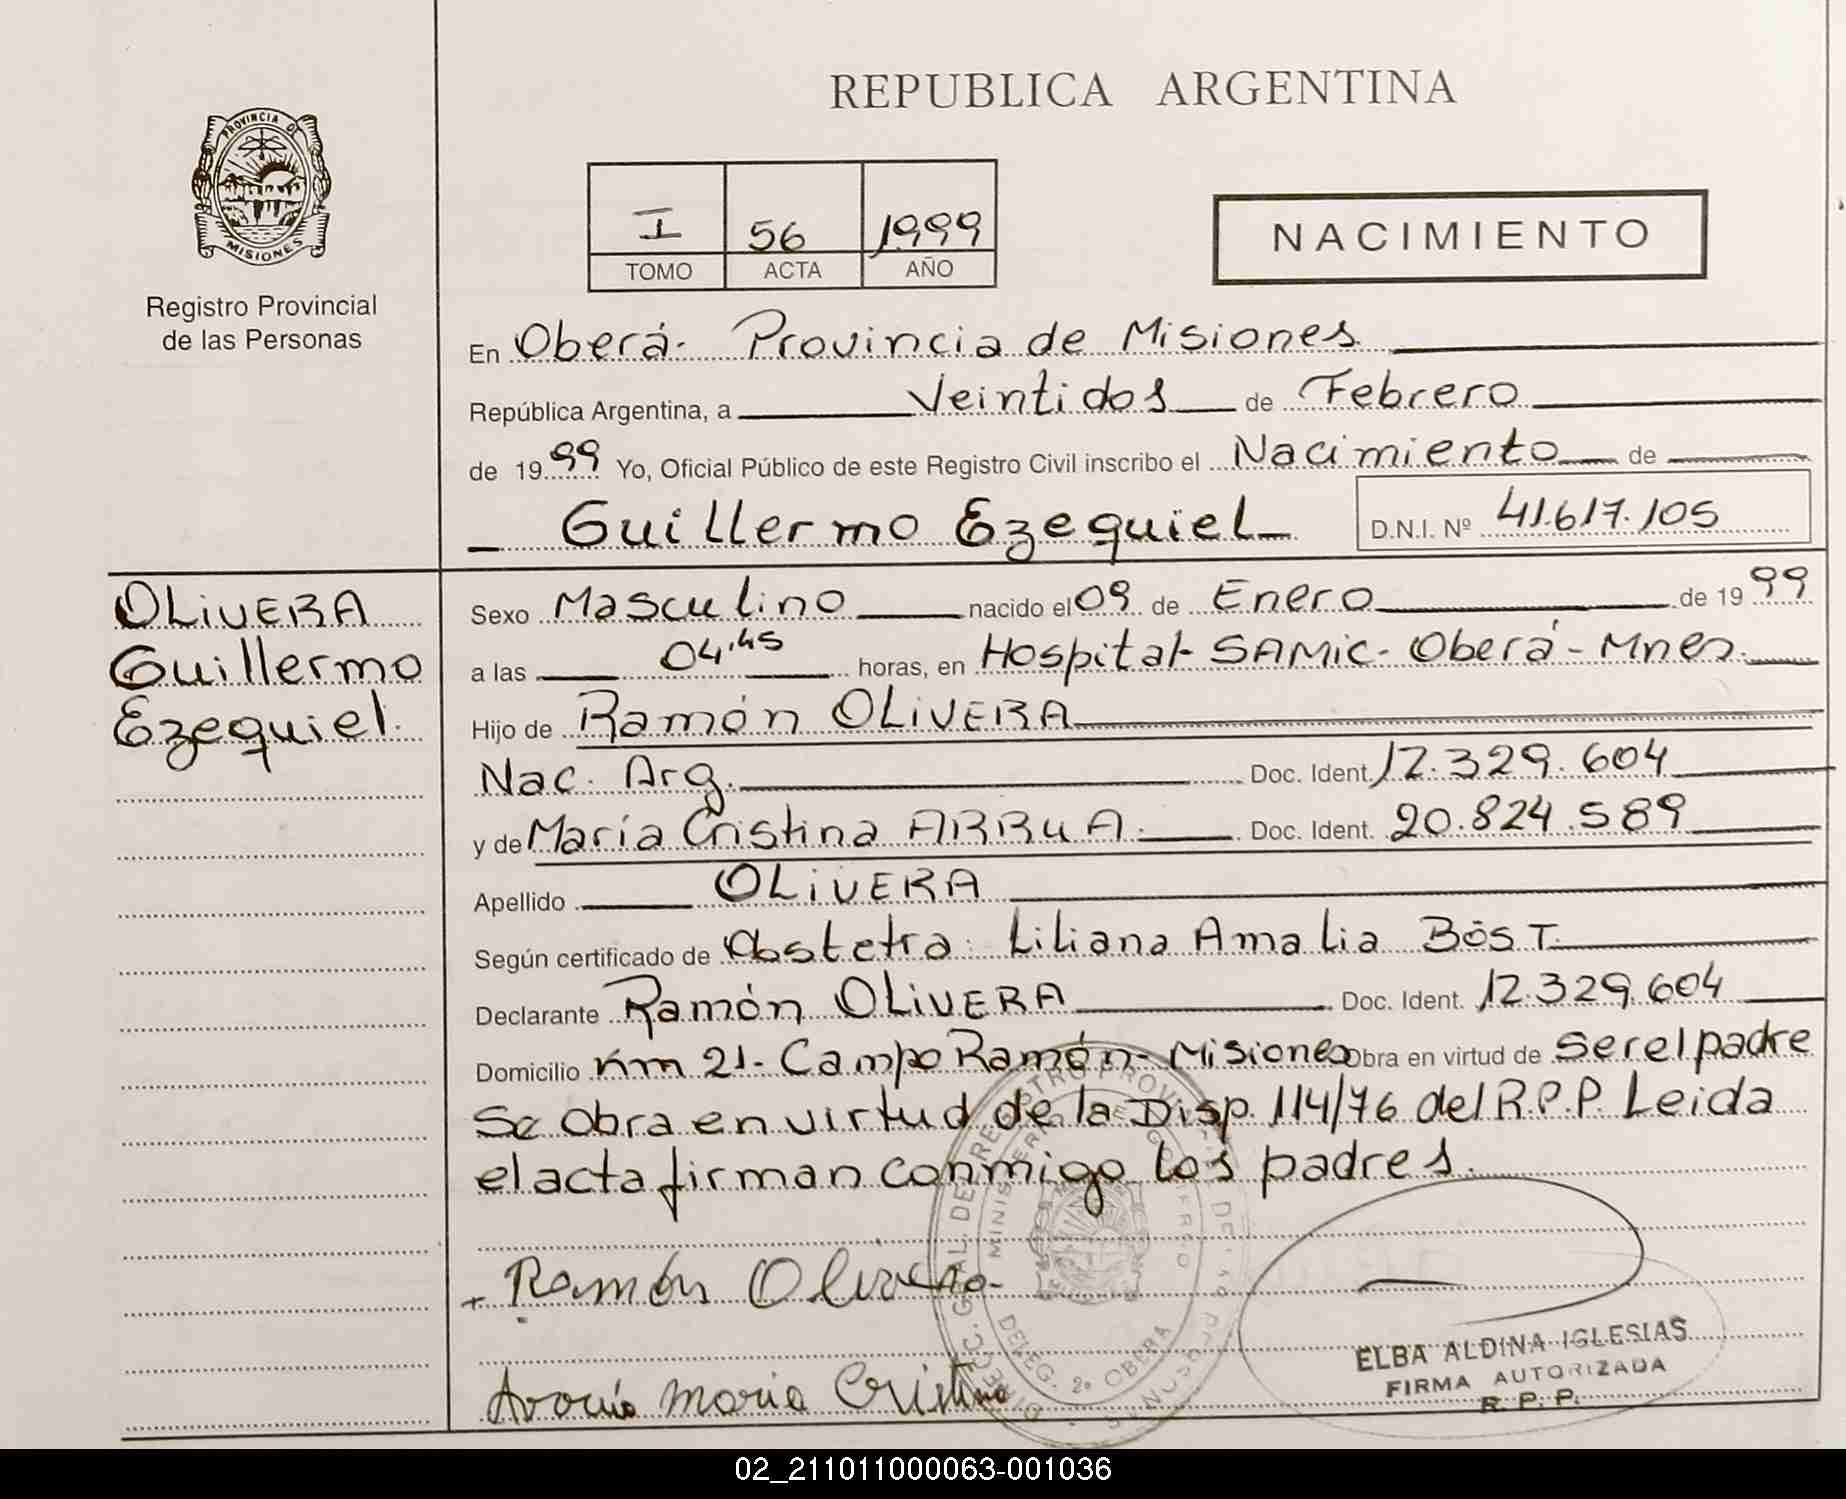 REPUBLICA ARGENTINA
PROVINCIA DE
MISIONES
Registro Provincial
de las Personas
I 56 1999
TOMO ACTA AÑO
NACIMIENTO
En Oberá. Provincia de Misiones
República Argentina, a Veintidos de Febrero
de 1999 Yo, Oficial Público de este Registro Civil inscribo el Nacimiento de
Guillermo Ezequiel D.N.I. Nº 41.617.105
OLIVERA
Guillermo
Ezequiel.
Sexo Masculino nacido el 09 de Enero de 1999
a las 04,45 horas, en Hospital SAMIC- Oberá - Mnes.
Hijo de Ramón OLIVERA
Nac. Arg. Doc. Ident. 12.329.604
y de María Cristina ARRUA. Doc. Ident. 20.824.589
Apellido OLIVERA
Según certificado de Obstetra: Liliana Amalia BÖST.
Declarante Ramón OLIVERA Doc. Ident. 12.329.604
Domicilio Km 21- Campo Ramón- Misiones Obra en virtud de ser el padre
Se obra en virtud de la Disp. 114/76 del R.P.P. Leida
el acta firman conmigo los padres.
Ramón Olivera
Maria Cristina
DELEG. 2º OBERA
ELBA ALDINA IGLESIAS
FIRMA AUTORIZADA
R. P. P.
02_211011000063-001036